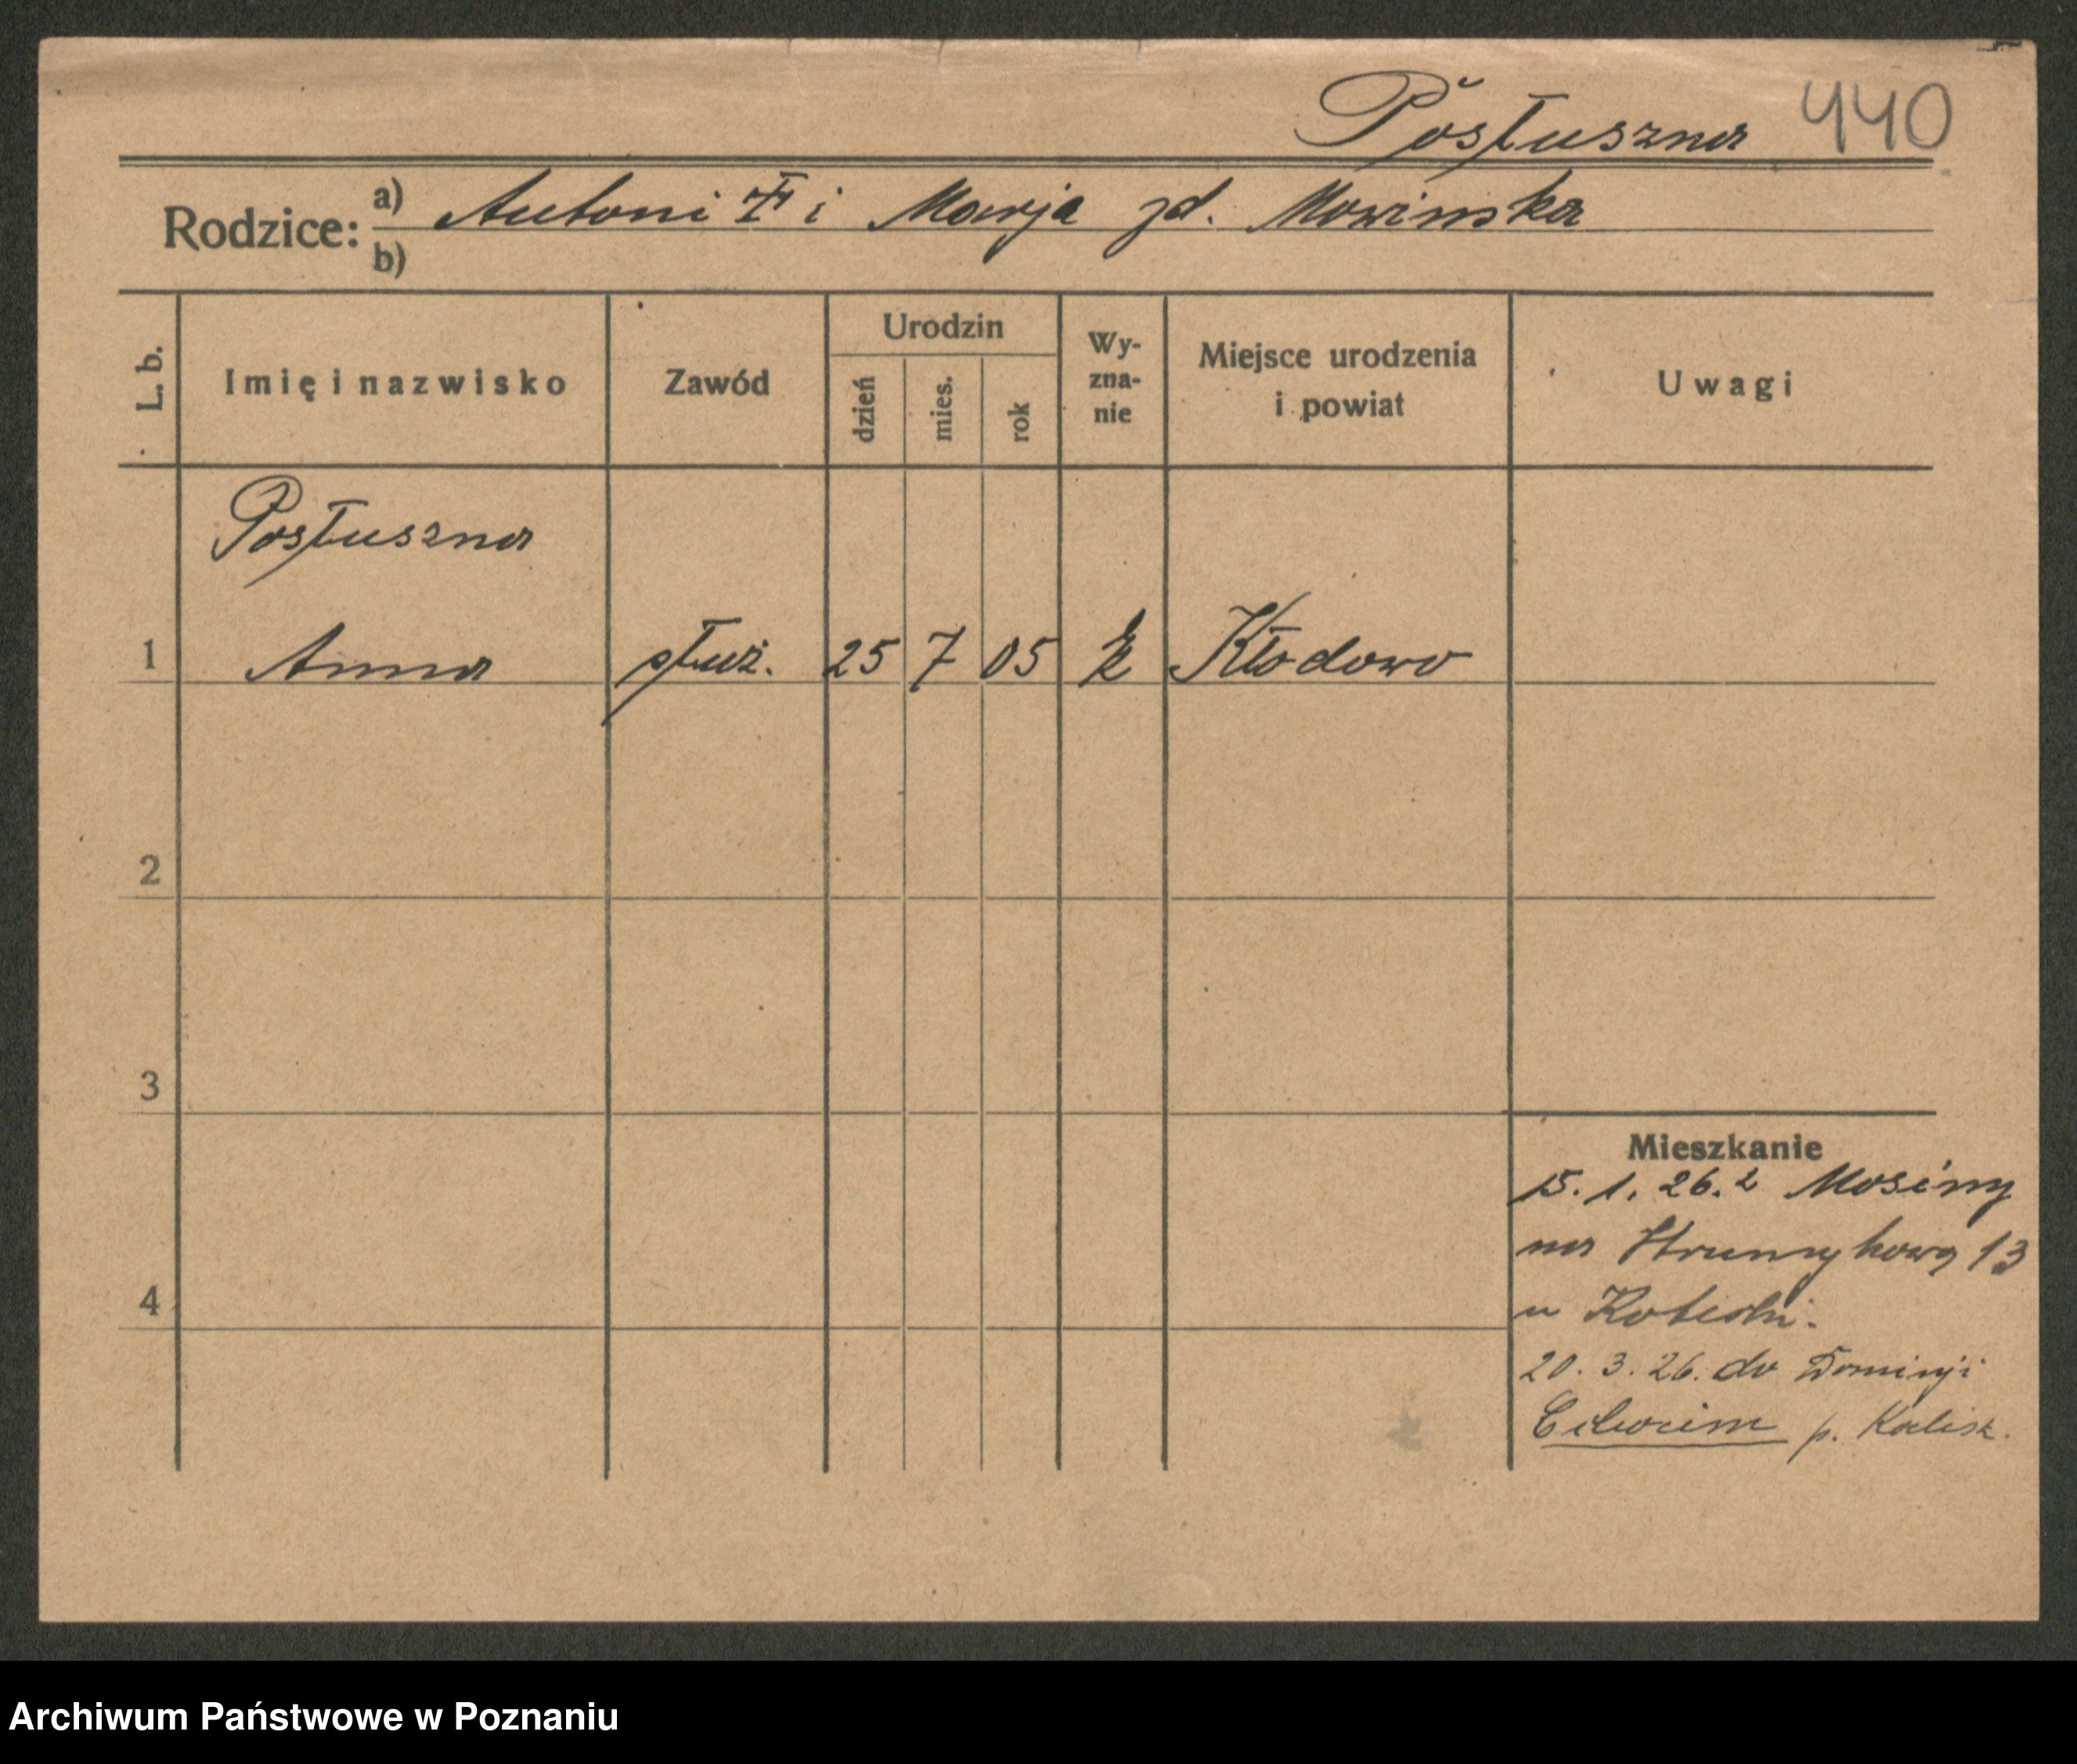 Posłuszna 440
Rodzice: a) Antoni i Marja zd. Mowinska
b)
L. b. Imię i nazwisko Zawód Urodzin dzień mies. rok Wy-zna-nie Miejsce urodzenia i powiat Uwagi
Posłuszna
1 Anna służ. 25 7 05 k Kłodowo
2
3
Mieszkanie
15. 1. 26. z Mosiny
na 13
4
u
20. 3. 26. do Dominji
p. Kalisz.
Archiwum Państwowe w Poznaniu